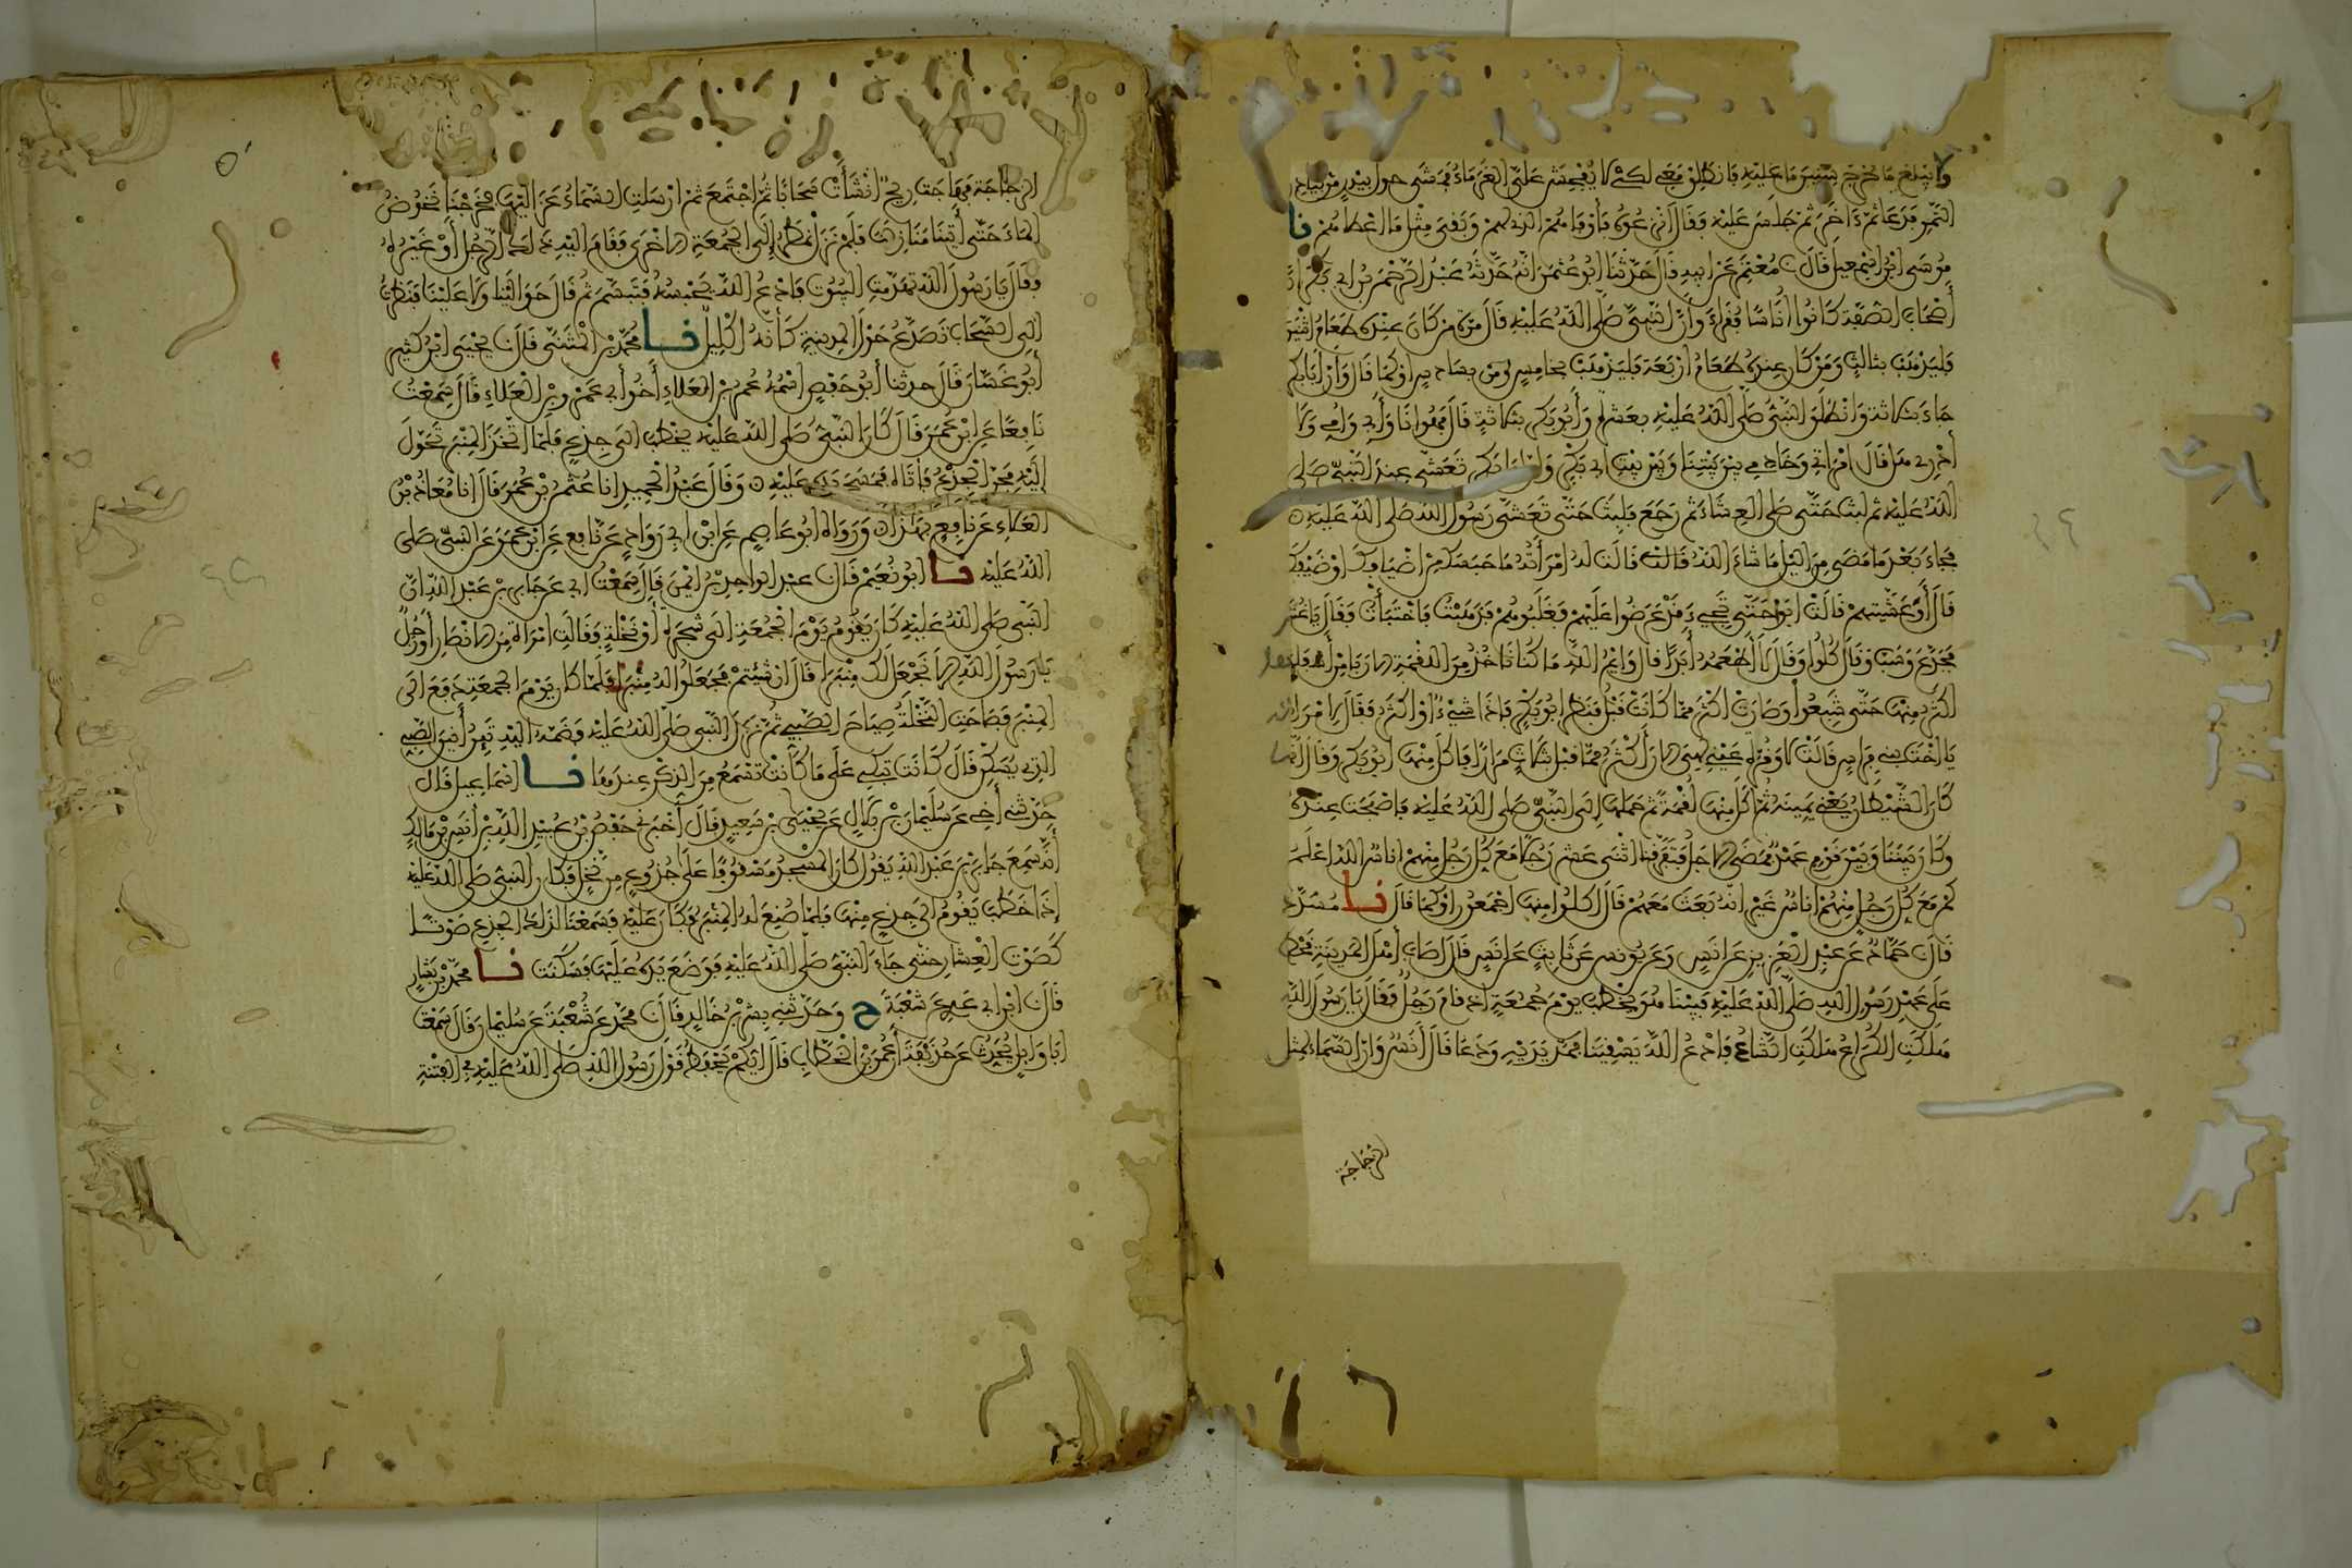 ولا يبلغ ما يخرج سنين ما عليه فانطلق معي لكي لا يفحش علي الغرماء فمشى حول بيدر من بيادر
التمر فدعا ثم ءاخر ثم جلس عليه وقال انزعوه فأوفاهم الذي لهم وبقي مثل ما أعطاهم نا
موسى بن إسمعيل قال نا معتمر عن ابيه قال حدثنا أبو عثمن انه حدثه عبد الرحمن بن ابي بكر أن
أصحاب الصفة كانوا أناسا فقراء وأن النبي صلى الله عليه قال مرة من كان عنده طعام اثنين
فليذهب بثالث ومن كان عنده طعام أربعة فليذهب بخامس او سادس او كما قال وأن أبا بكر
جاء بثلاثة وانطلق النبي صلى الله عليه بعشرة وأبو بكر بثلاثة قال فهو انا وأبي وأمي ولا
أدري هل قال امرأتي وخادمي بين بيتنا وبين بيت ابي بكر وان أبا بكر تعشى عند النبي صلى
الله عليه ثم لبث حتى صلى العشاء ثم رجع فلبث حتى تعشى رسول الله صلى الله عليه
فجاء بعد ما مضى من الليل ما شاء الله قالت له امرأته ما حبسك من اضيافك او ضيفك
قال أوعشيتهم قالت ابوا حتى تجي قد عرضوا عليهم فغلبوهم فذهبت فاختبأت وقال يا غنثر
فجدع وسب وقال كلوا وقال لا أطعمه أبدا قال وايم الله ما كنا ناخذ من اللقمة الا ربا من أسفلها
اكثر منها حتى شبعوا وصارت اكثر مما كانت قبل فنظر ابو بكر فإذا شيء او اكثر فقال لامرأته
يا أخت بني فراس قالت لا وقرة عيني لهي الان أكثر مما قبل بثلاث مرار فاكل منها ابو بكر وقال انما
كان الشيطان يعني يمينه ثم اكل منها لقمة ثم حملها إلى النبي صلى الله عليه فاصبحت عنده
وكان بيننا وبين قوم عهد فمضى الاجل فتفرقنا اثنى عشر رجلا مع كل رجل منهم اناس الله اعلم
كم مع كل رجل منهم اناس غير انه بعث معهم قال اكلوا منها اجمعون او كما قال نا مسدد
قال نا حماد عن عبد العزيز عن انس وعن يونس عن ثابت عن انس قال اصاب أهل المدينة قحط
على عهد رسول الله صلى الله عليه فبينا هو يخطب يوم جمعة اذ قام رجل فقال يا رسول الله
هلكت الكراع هلكت الشاء فادع الله يسقينا فمد يديه ودعا قال أنس وان السماء لمثل
الزجاجة
الزجاجة فهاجت ريح انشأت سحابا ثم اجتمع ثم ارسلت السماء عزاليها فخرجنا نخوض
الماء حتى أتينا منازلنا فلم نزل نمطر إلى الجمعة الاخرى فقام اليه ذلك الرجل أو غيره
وقال يا رسول الله تهدمت البيوت فادع الله يحبسه فتبسم ثم قال حوالينا ولا علينا فنظرت
الى السحاب تصدع حول المدينة كأنه اكليل نا محمد بن المثنى قال نا يحيى ابن كثير
أبو غسان قال حدثنا أبو حفص اسمه عمر بن العلاء أخو أبي عمرو بن العلاء قال سمعت
نافعا عن ابن عمر قال كان النبي صلى الله عليه يخطب الى جذع فلما اتخذ المنبر تحول
إليه فحن الجذع فأتاه فمسح يده عليه وقال عبد الحميد انا عثمن بن عمر قال انا معاذ بن
العلاء عن نافع بهذا ورواه أبو عاصم عن ابن ابي رواد عن نافع عن ابن عمر عن النبي صلى
الله عليه نا ابو نعيم قال نا عبد الواحد بن ايمن قال سمعت ابي عن جابر بن عبد الله ان
النبي صلى الله عليه كان يقوم يوم الجمعة الى شجرة أو نخلة وقالت امرأة من الانصار أو رجل
يا رسول الله الا نجعل لك منبرا قال ان شئتم فجعلوا له منبرا فلما كان يوم الجمعة دفع الى
المنبر فصاحت النخلة صياح الصبي ثم نزل النبي صلى الله عليه وضمه اليه تين أنين الصبي
الذي يسكن قال كانت تبكي على ما كانت تسمع من الذكر عندها نا اسماعيل قال
حدثني أخي عن سليمان بن بلال عن يحيى بن سعيد قال أخبرني حفص بن عبيد الله بن أنس بن مالك
أنه سمع جابر بن عبد الله يقول كان المسجد مسقوفا على جذوع من نخل فكان النبي صلى الله عليه
إذا خطب يقوم الى جذع منها فلما صنع له المنبر وكان عليه فسمعنا لذلك الجذع صوتا
كصوت العشار حتى جاء النبي صلى الله عليه فوضع يده عليها فسكنت نا محمد بن بشار
قال نا ابن ابي عدي عن شعبة ح وحدثني بشر بن خالد قال نا محمد عن شعبة عن سليمان قال سمعت
ابا وايل يحدث عن حذيفة أن عمر بن الخطاب قال ايكم يحفظ قول رسول الله صلى الله عليه في الفتنة